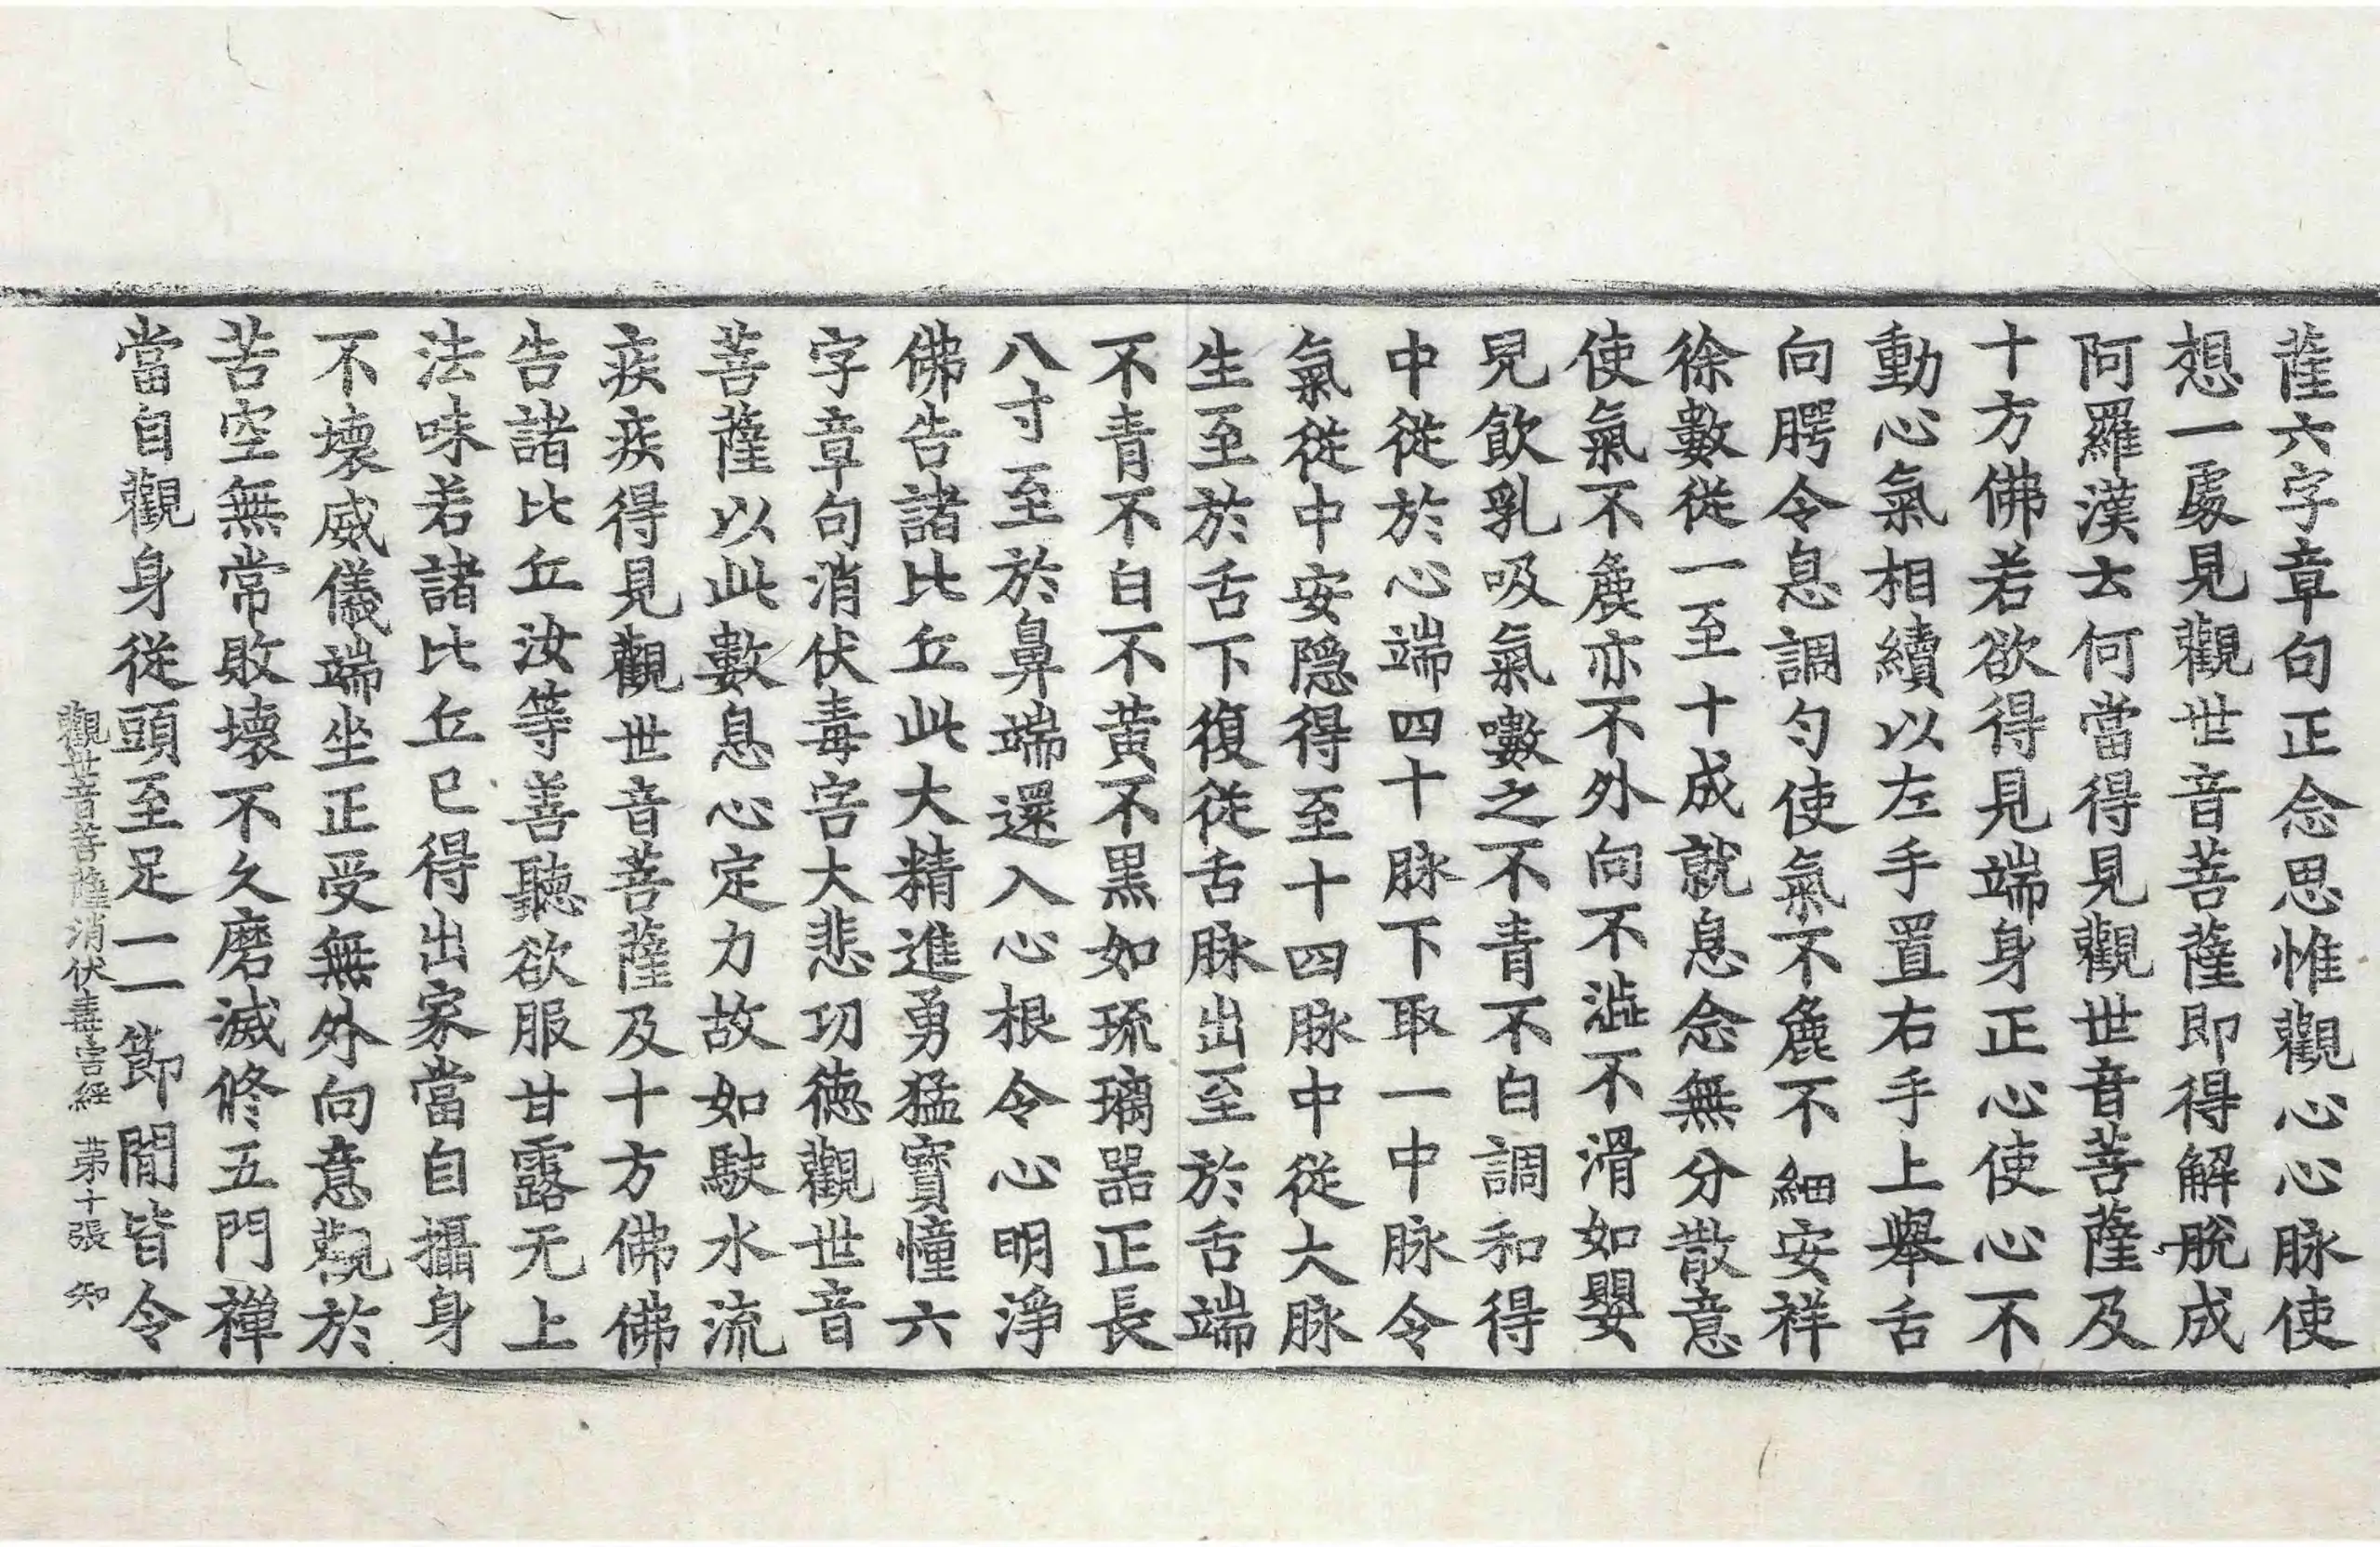 薩六字章句正念思惟觀心心脉使
想一處見觀世音菩薩即得解脫成
阿羅漢去何當得見觀世音菩薩及
十方佛若欲得見端身正心使心不
動心氣相續以左手置右手上舉舌
向腭令息調勻使氣不麁不細安祥
徐數從一至十成就息念無分散意
使氣不麁亦不外向不澁不滑如嬰
兒飲乳吸氣嗽之不青不白調和得
中從於心端四十脉下取一中脉令
氣從中安隱得至十四脉中從大脉
生至於舌下復從舌脉出至於舌端
不青不白不黃不黑如琉璃器正長
八寸至於鼻端還入心根令心明淨
佛告諸比丘此大精進勇猛寶憧六
字章句消伏毒害大悲功德觀世音
菩薩以此數息心定力故如駃水流
疾疾得見觀世音菩薩及十方佛佛
告諸比丘汝等善聽欲服甘露无上
法味若諸比丘已得出家當自攝身
不壞威儀端坐正受無外向意觀於
苦空無常敗壞不久磨滅修五門禪
當自觀身從頭至足一一節間皆令
觀世音菩薩消伏毒害經 苐十張 知